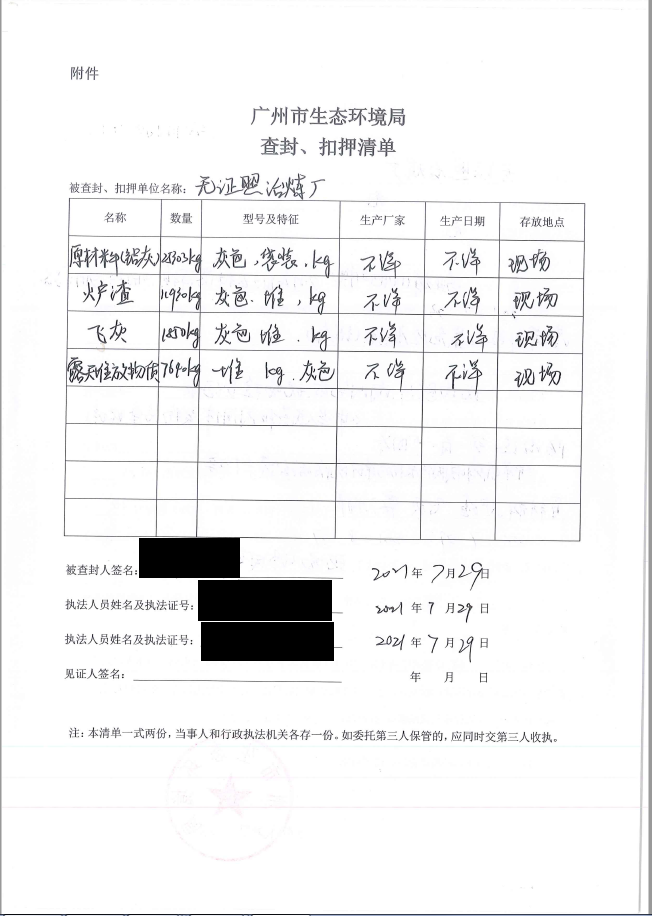 附件
广州市生态环境局
查封、扣押清单
被查封、扣押单位名称：无证照冶炼厂
名称 数量 型号及特征 生产厂家 生产日期 存放地点
原材料(铝灰) kg 灰色、袋装、kg 不详 不详 现场
火炉渣 kg 灰色、堆、kg 不详 不详 现场
飞灰 1850kg 灰色 堆、kg 不详 不详 现场
露天堆放物质 7640kg 一堆 kg、灰色 不详 不详 现场
被查封人签名： 2021年7月29日
执法人员姓名及执法证号： 2021年7月29日
执法人员姓名及执法证号： 2021年7月29日
见证人签名： 年 月 日
注：本清单一式两份，当事人和行政执法机关各存一份。如委托第三人保管的，应同时交第三人收执。